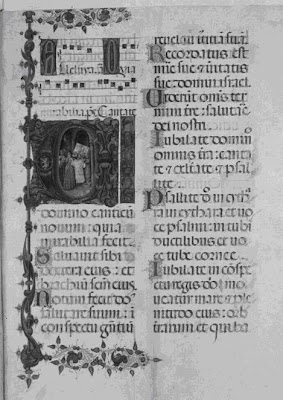 domino canticu
novum: quia
mirabilia fecit.
Salvavit sibi
dextera eius: et
brachiu scm eius.
Notum fecit do
salutare suum: i
conspectu gentiu
revelavit iustitia sua.
Recordatus est
mie sue et veritatis
sue domui israel.
Viderut oms ter
mini tre: salutare
dei nostri.
Iubilate domino
omnis tra: canta
te et exltate et psalli
te.
Psallite do in cyth
ra in cythara et vo
ce psalmi: in tubis
ductilibus et vo
ce tube cornee.
Iubilate in cospec
tu regis do: mo
veatur mare et ple
nitudo eius: orb
terrarum et qui ha